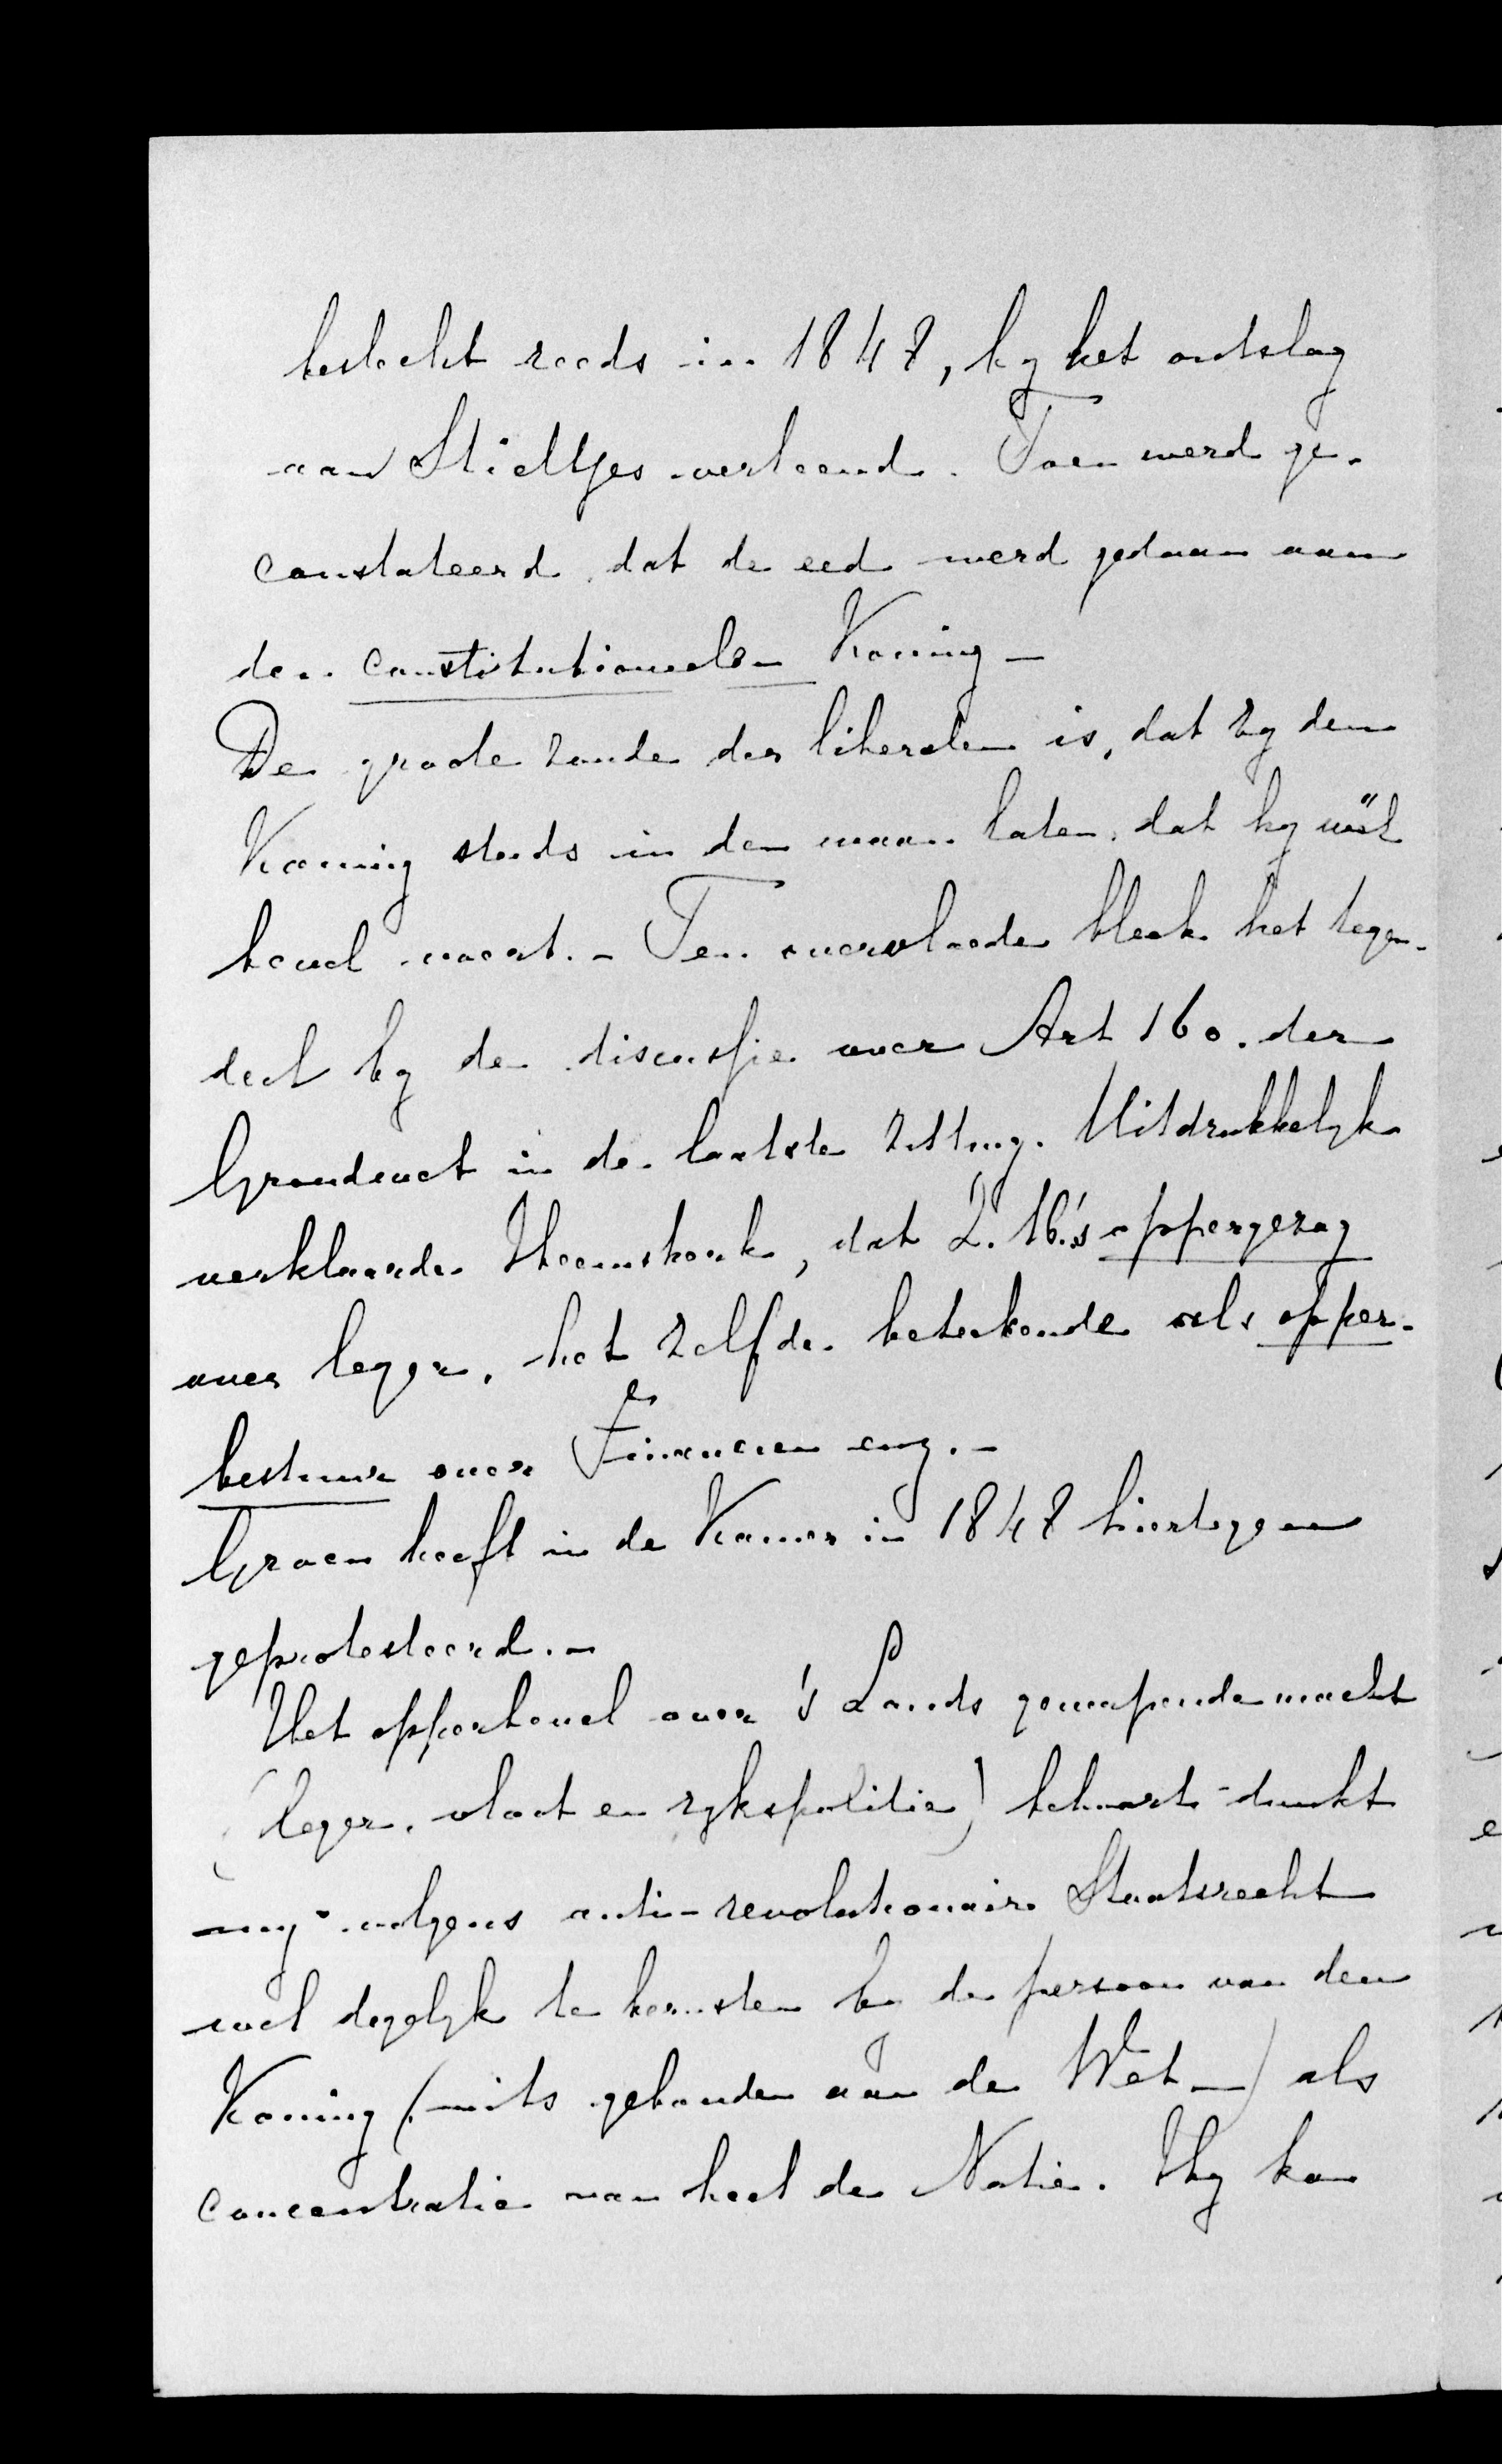 beslecht reeds in 1848, by het ontslag
aan Stieltjes verleend. Toen werd ge-
constateerd dat de eed werd gedaan aan
den constitutioneelen Koning –
De groote zonde der liberalen is, dat zy den
Koning steeds in den waan laten, dat hy wèl
bevel voert. – Ten overvloede bleek het tegen-
deel by de discussie over Art 160. der
Grondwet in de laatste zitting. Uitdrukkelyk
verklaarde Heemskerk, dat Z. M.'s oppergezag
over leger, het zelfde beteekende als opper-
bestuur over de Financien enz. –
Groen heeft in de Kamer in 1848 hiertegen
geprotesteerd. –
Het opperbevel over 's Lands gewapende macht
(leger, vloot en rykspolitie) behoort - dunkt
my - volgens anti-revolutionair Staatsrecht
wel degelyk te berusten by de persoon van den
Koning (mits gebonden aan de Wet –) als
concentratie van heel de Natie. Hy kan